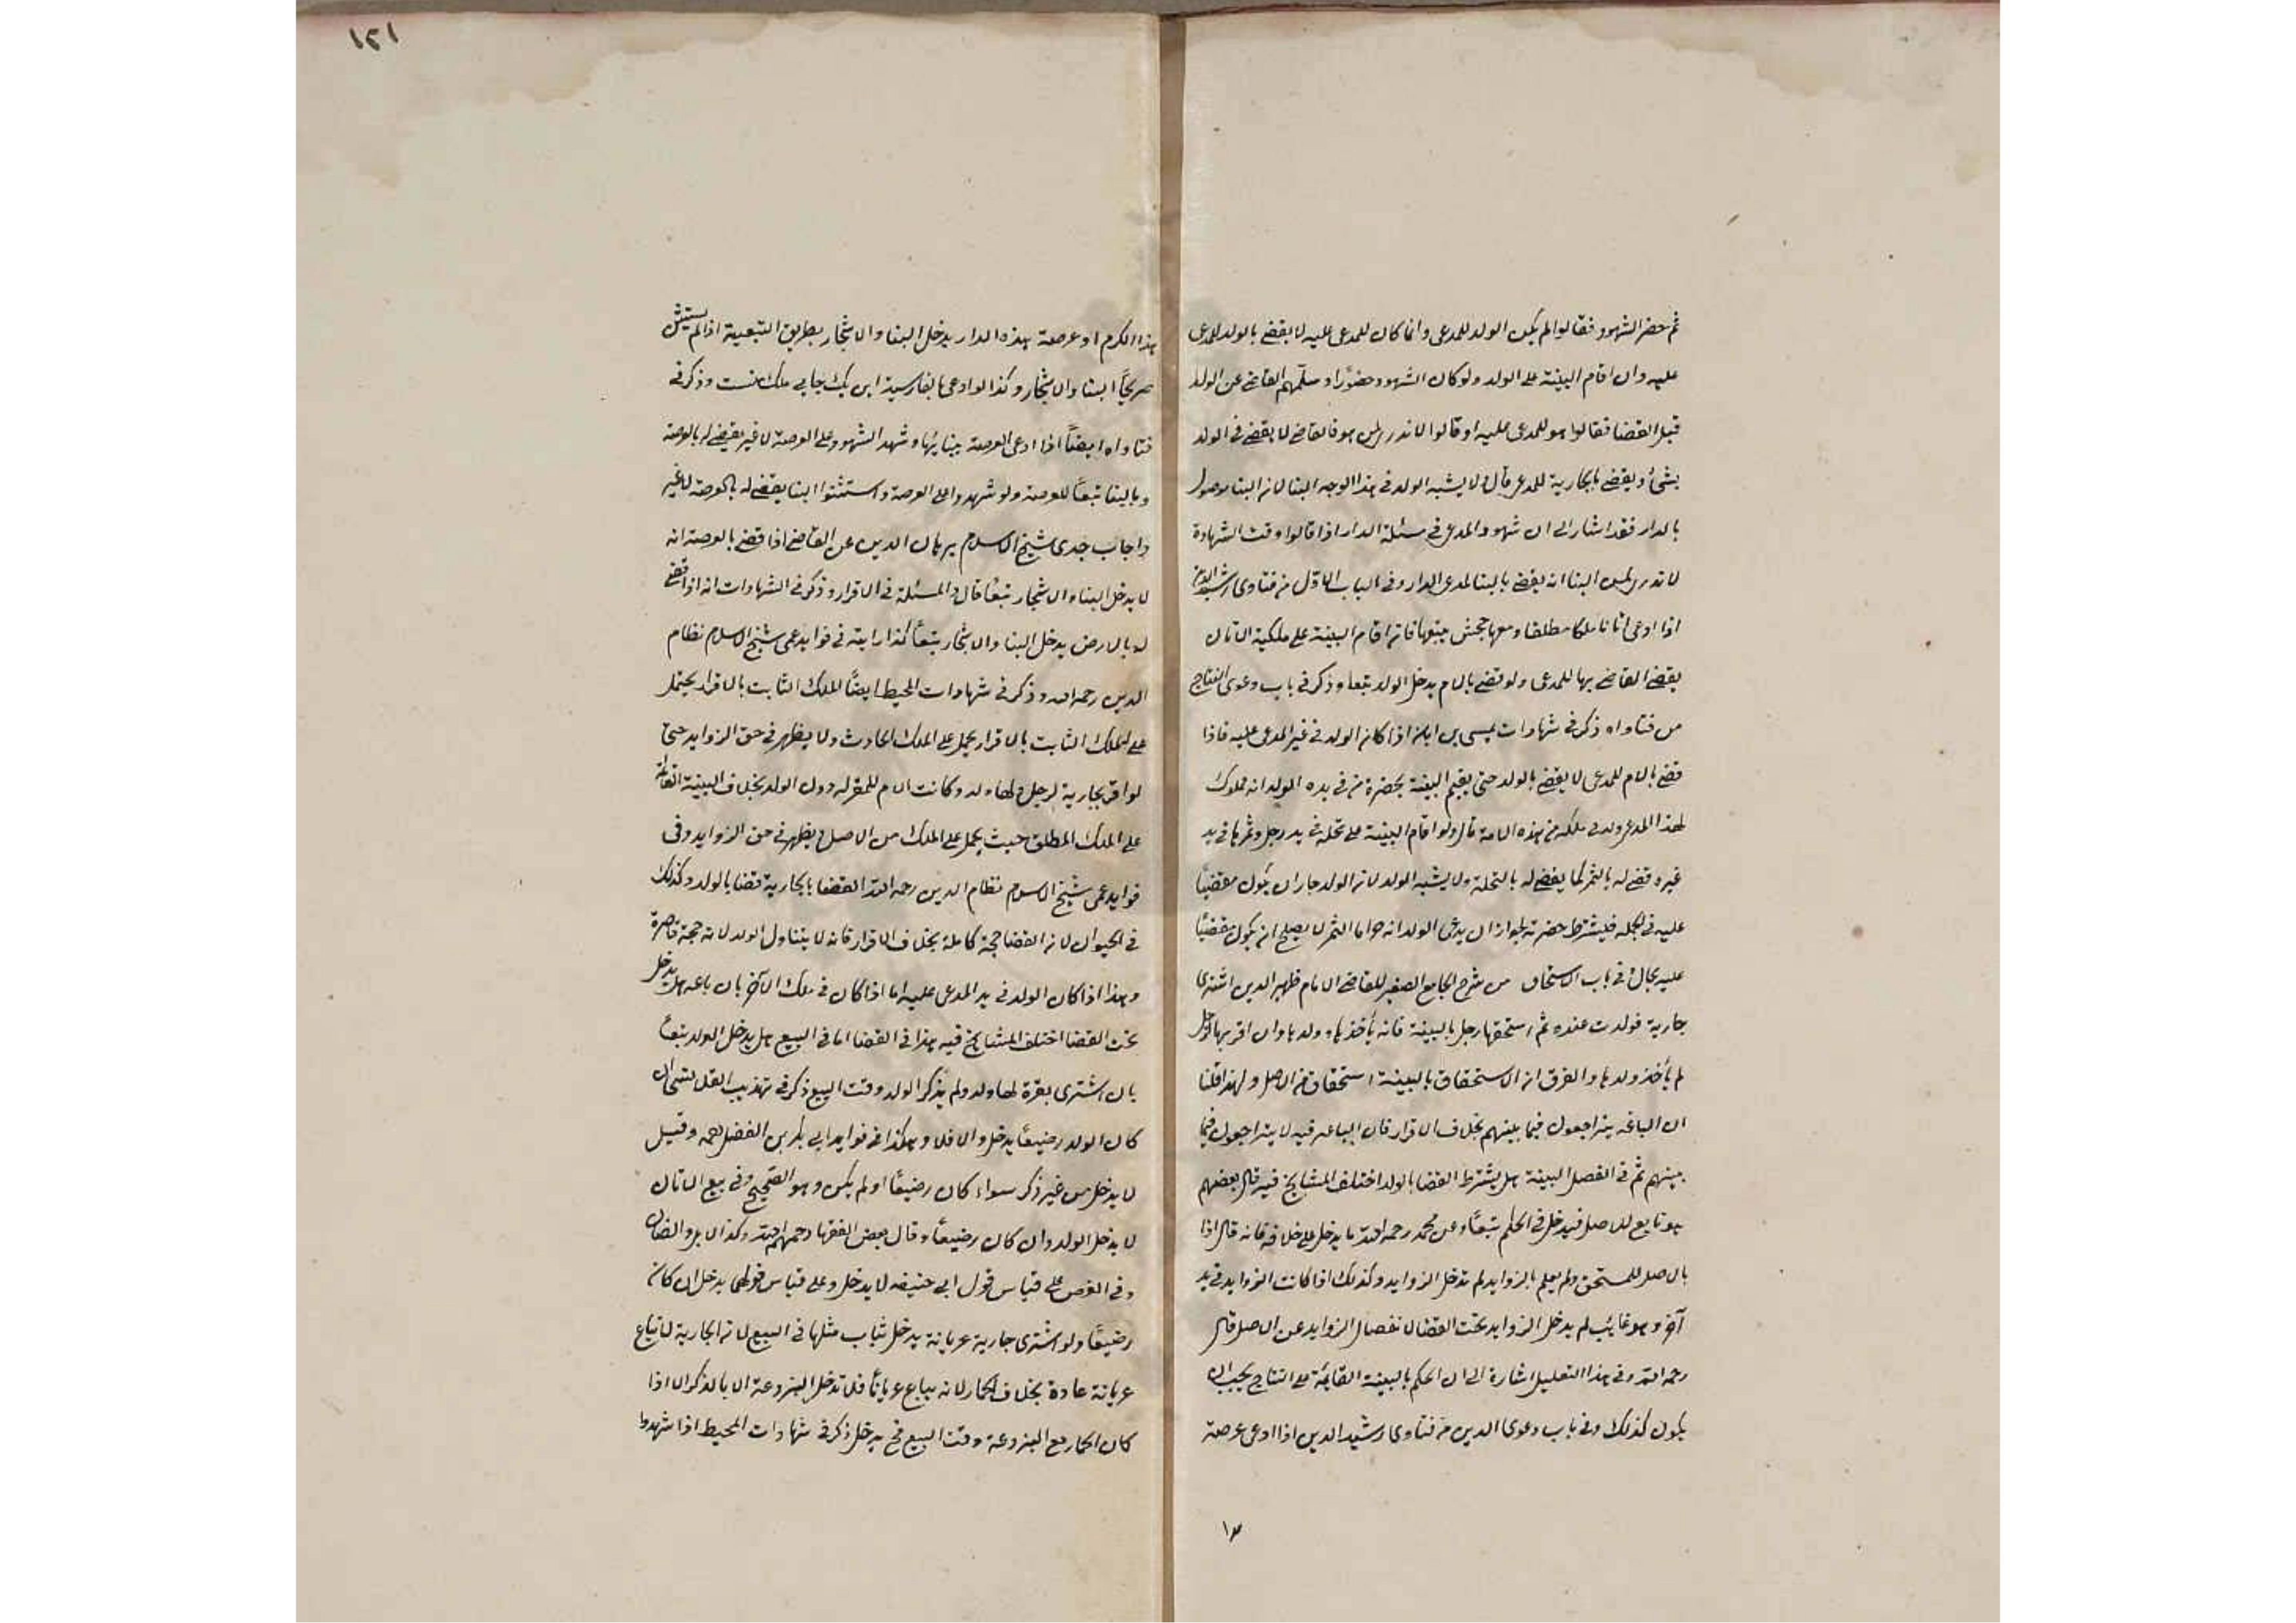 ثم حضر الشهود فقالوا لم يكن الولد للمدعى وانما كان للمدعى عليه لا يقضى بالولد للمدعى
عليه وان اقام البينة على الولد ولو كان الشهود حضورا وسألهم القاضى عن الولد
قبل القضا فقالوا هو للمدعى عليه او قالوا لا ندرى لمن هو فالقاضى لا يقضى فى الولد
بشئ ويقضى بالجارية للمدعى قال ولا يشبه الولد فى هذا الوجه البنا لان البنا موصول
بالدار فقد اشار الى ان شهود المدعى فى مسئلة الدار اذا قالوا وقت الشهادة
لا ندرى لمن البنا انه يقضى بالبنا لمدعى الدار وفى الباب الاول من فتاوى رشيد الدين
اذا ادعى اتانا ملكا مطلقا ومعها جحش يتبعها فانه اقام البينة على ملكية الاتان
يقضى القاضى بها للمدعى ولو قضى بالام يدخل الولد تبعا وذكر فى باب دعوى النتاج
من فتاواه ذكر فى شهادات عيسى بن ابان اذا كان الولد فى غير المدعى عليه فاذا
قضى بالام للمدعى لا يقضى بالولد حتى يقيم البينة بحضرة من فى يده الولد انه مملوك
لهذا المدعى ولد فى ملكه من هذه الامة قال ولو اقام البينة على نخلة فى يد رجل وثمرها فى يد
غيره وقضى له بالثمر كما يقضى له بالنخلة ولا يشبه الولد لان الولد جاز ان يكون مقضيا
عليه فى الجملة فيشترط حضرته لجواز ان يدعى الولد انه حر اما الثمر لا يصلح ان يكون مقضيا
عليه بحال وفى باب الاستحقاق من شرح الجامع الصغير للقاضى الامام ظهير الدين اشترى
جارية فولدت عنده ثم استحقها رجل بالبينة فانه يأخذها وولدها وان اقر بها لرجل
لم يأخذ ولدها والفرق ان الاستحقاق بالبينة استحقاق من الاصل ولهذا قلنا
ان الباعة يتراجعون فيما بينهم بخلاف الاقرار فان الباعة فيه لا يتراجعون فيما
بينهم ثم فى الفصل البينة هل يشترط القضا بالولد اختلف المشايخ فيه قال بعضهم
هو تابع للاصل فيدخل فى الحكم تبعا وعن محمد رحمه الله ما يدخل على خلافه فانه قال اذا
بالاصل للمستحق ولم يعلم بالزوايد لم تدخل الزوايد وكذلك اذا كانت الزوايد فى يد
آخر وهو غايب لم يدخل الزوايد تحت القضا لانفصال الزوايد عن الاصل قال
رحمه الله وفى هذا التعليل اشارة الى ان الحكم بالبينة القايمة على النتاج يجب ان
يكون كذلك وفى باب دعوى الدين من فتاوى رشيد الدين اذا ادعى عرصة
١٢١
هذا الكرم او عرصة هذه الدار يدخل البنا والاشجار بطريق التبعية اذا لم يستثن
صريحا البنا والاشجار وكذا لو ادعى بالفارسية اين ملك منست وذكر فى
فتاواه ايضا اذا ادعى العرصة ببنائها وشهد الشهود على العرصة لا غير يقضى له بالعرصة
وبالبنا تبعا للعرصة ولو شهدوا على العرصة واستثنوا البنا يقضى له بالعرصة لا غير
واجاب جدى شيخ الاسلام برهان الدين عن القاضى اذا قضى بالعرصة انه
لا يدخل البناء والاشجار تبعا قال والمسئلة فى الاقرار وذكر فى الشهادات انه اذا قضى
له بالارض يدخل البنا والاشجار تبعا كذا رايته فى فوايد عمى شيخ الاسلام نظام
الدين رحمه الله وذكر فى شهادات المحيط ايضا الملك الثابت بالاقرار يحتمل
على الملك الثابت بالاقرار يحمل على الملك الحادث ولا يظهر فى حق الزوايد حتى
لو اقر بجارية لرجل ولها ولد وكانت الام للمقر له دون الولد بخلاف البينة القائمة
على الملك المطلق حيث يحمل على الملك من الاصل ويظهر فى حق الزوايد وفى
فوايد عمى شيخ الاسلام نظام الدين رحمه الله القضا بالجارية قضا بالولد وكذلك
فى الحيوان لان القضا حجة كاملة بخلاف الاقرار فانه لا يتناول الولد لانه حجة قاصرة
وهذا اذا كان الولد فى يد المدعى عليه اما اذا كان فى ملك الآخر بان باعه هل يدخل
تحت القضا اختلف المشايخ فيه هذا فى القضا اما فى البيع هل يدخل الولد تبعا
بان اشترى بقرة لها ولد ولم يذكر الولد وقت البيع ذكر فى تهذيب القلانسى ان
كان الولد رضيعا يدخل والا فلا وهكذا فى فوايد ابى بكر بن الفضل رحمه وقيل
لا يدخل من غير ذكر سواء كان رضيعا او لم يكن وهو الصحيح وفى بيع الاتان
لا يدخل الولد وان كان رضيعا وقال بعض الفقها رحمهم الله وكذا الابل والضان
وفى الفرس على قياس قول ابى حنيفه لا يدخل وعلى قياس قولهما يدخل ان كان
رضيعا ولو اشترى جارية عريانة يدخل ثياب مثلها فى البيع لان الجارية لا تباع
عريانة عادة بخلاف الحمار لانه يباع عريانا فلا تدخل البردعة الا بالذكر الا اذا
كان الحمار مع البردعة وقت البيع فح يدخل ذكر فى شهادات المحيط اذا شهدوا